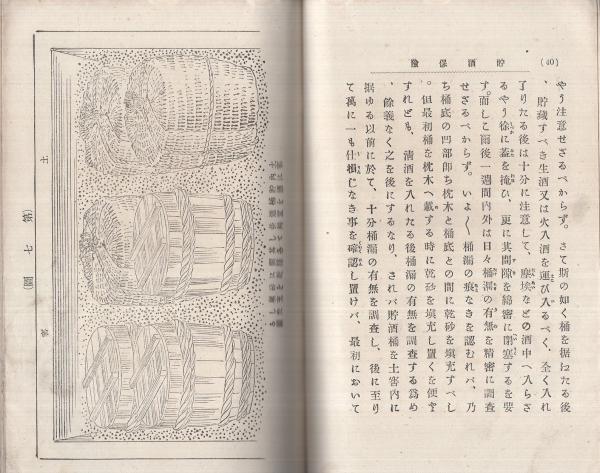 (40)
貯酒保險
やう注意せざるべからず。さて斯の如く桶を据ねたる後
、貯藏すべき生酒又は火入酒を運び入るべく、全く入れ
了りたる後は十分に注意して、塵埃などの酒中へ入らざ
るやう徐に蓋を掩ひ、更に其間隙を綿密に閉塞するを要
す。而して爾後一週間内外は日々桶漏の有無を精密に調査
せざるべからず。いよ〱桶漏の痕なきを認むれバ、乃
ち桶底の凹部即ち枕木と桶底との間に乾砂を填充すべし
。但最初桶を枕木へ載する時に乾砂を填充し置くを便と
すれども、清酒を入れたる後桶漏の有無を調査する爲め
、餘義なく之を後にするなり、されバ貯酒桶を土窖内に
据ゆる以前に於て、十分桶漏の有無を調査し、後に至り
て萬に一も仕損じなき事を確認し置けバ、最初において
(第七圖)
土